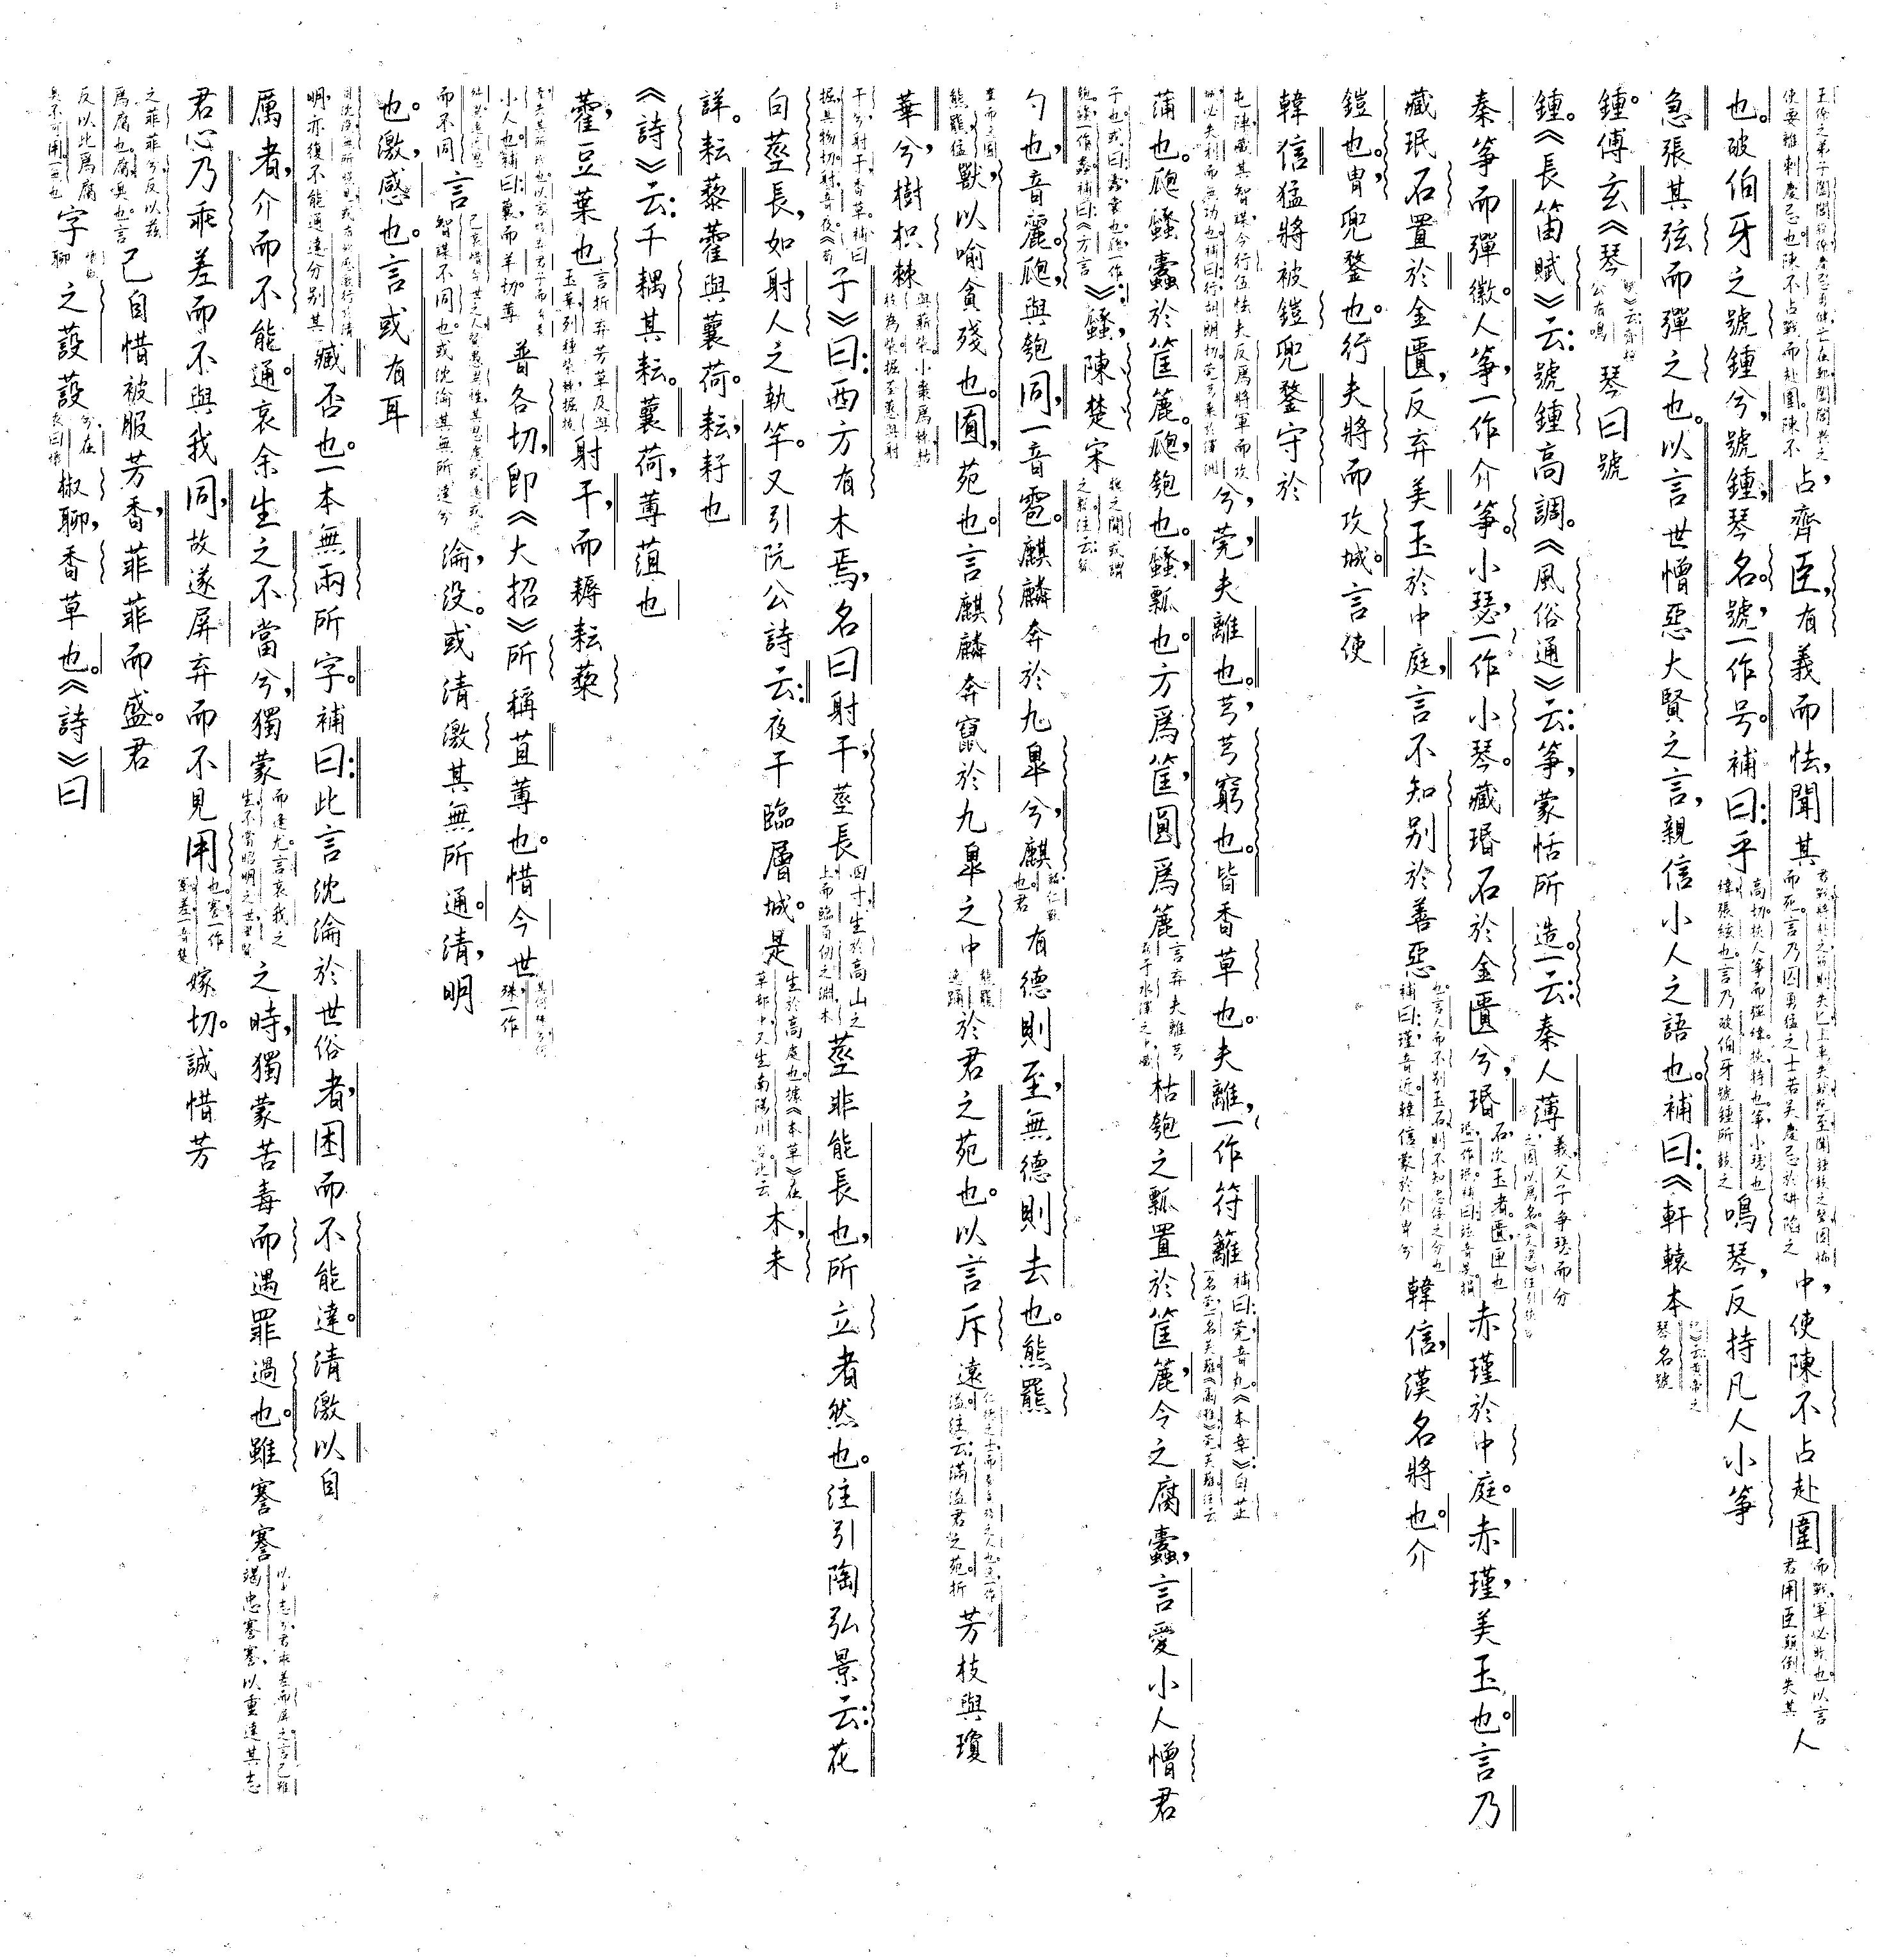 使要離刺慶忌也。陳不占戰而赴圍。陳不占，齊臣，有義而怯，聞其君戰將赴之而死。言乃囚勇猛之士若吳慶忌於阱陷之中，使陳不占赴圍而戰，軍必敗也。以言君用臣顛倒失其人
也。破伯牙之號鍾兮，號鍾，琴名。號，一作号。補曰：乎高切。挾人箏而彈緯。挾，持也。箏，小瑟也緯，張絃也。言乃破伯牙號鍾所鼓之鳴琴，反持凡人小箏
急張其弦而彈之也。以言世憎惡大賢之言，親信小人之語也。補曰：《軒轅本紀》云：黃帝之琴名號
鍾。傅玄《琴賦》云：齊桓公有鳴琴曰號
鍾。《長笛賦》云：號鍾高調。《風俗通》云：箏，蒙恬所造。一云：秦人薄義，父子爭瑟而分之，因以爲名。《文選》注引
秦箏而彈徽。人箏，一作介箏。小瑟，一作小琴。藏瑉石於金匱兮，瑉石，次玉者。匱，匣也。瑉，一作珉。補曰：赤瑾於中庭。赤瑾，美玉也。言乃
藏珉石置於金匱，反弃美玉於中庭，言不知别於善惡也。言人而不别玉石，則不知忠佞之分也補曰：瑾音近。韓信蒙於介胄兮韓信，漢名將也。介
鎧也。胄，兜鍪也。行夫將而攻城。言使
韓信猛將被鎧兜鍪守於
屯陣，藏其智謀，令行伍怯夫反爲將軍而攻城，必失利而無功也。補曰：行，胡朗切。莞芎棄於澤洲兮，莞，夫離也。芎，芎窮也。皆香草也。夫離，一作符籬。補曰：莞音丸。《本草》：白芷一名莞，一名苻蘺。《爾雅》：莞，苻蘺。注云
蒲也。瓟蠡蠹於筐簏。瓟，匏也。蠡，瓢也。方爲筐，圓爲簏。言弃夫離芎於水澤之枯匏之瓢置於筐簏，令之腐蠹，言愛小人憎君
子也。或曰：蠹，囊也。瓟，一作匏。蠡，一作蠡。補曰：《方言》：蠡，陳楚宋魏之閒或謂之
勺也，音麗。瓟，與匏同，一音雹。麒麟奔於九皐兮，麒麟，仁獸也。君有德則至，無德則去也。熊羆
羣而逸囿。熊羆，猛獸，以喻貪殘也。囿，苑也。言麒麟奔竄於九皐之中，熊羆逸踊於君之苑也。以言斥遠折芳枝與瓊
華兮，樹枳棘與薪柴。小棗爲棘，枯枝爲柴。掘荃蕙與射
干兮，射干，香草。補曰：掘，其物切。射音夜。《荀子》曰：西方有木焉，名曰射干，莖長四寸，生於高山之上，而臨百仞之淵。木莖非能長也，所立者然也。注引陶弘景云：花
白莖長，如射人之執竿。又引阮公詩云：夜干臨層城。是生於高處也。據《本草》在草部中，又生南陽川谷。此云木，未
詳。耘藜藿與蘘荷。耘，耔也
《詩》云：千耦其耘。蘘荷，蓴菹也
藿，豆葉也。言折弃芳草及與玉華，列種柴棘，掘拔射干，而耨耘藜
小人也。補曰：蘘，而羊切。蓴，普各切，即《大招》所稱苴蓴也。惜今世其何殊兮殊，一作
而不同。言己哀惜今世之人賢愚異性，其思慮或遠或近，智謀不同也。或沈淪其無所達兮淪，没。或清激其無所通。清，明
也。激，感也。言或有耳
明，亦復不能通達分别其臧否也。一本無兩所字。補曰：此言沈淪於世俗者，困而不能達。清激以自
厲者，介而不能通。哀余生之不當兮，獨蒙毒而逢尤。言哀我之生不當昭明之世，聖賢之時，獨蒙苦毒而遇罪過也。雖謇謇以申志兮，君乖差而屏之。言己雖竭忠謇謇，以重達其志
君心乃乖差而不與我同，故遂屏弃而不見用也。謇，一作蹇。差，音楚嫁切。誠惜芳
之菲菲兮，反以兹爲腐也。腐，臭也。言己自惜被服芳香，菲菲而盛。君
反以此爲腐臭不可用。一無也字聊之蔎蔎兮，在衣曰懷椒聊，香草也。《詩》曰